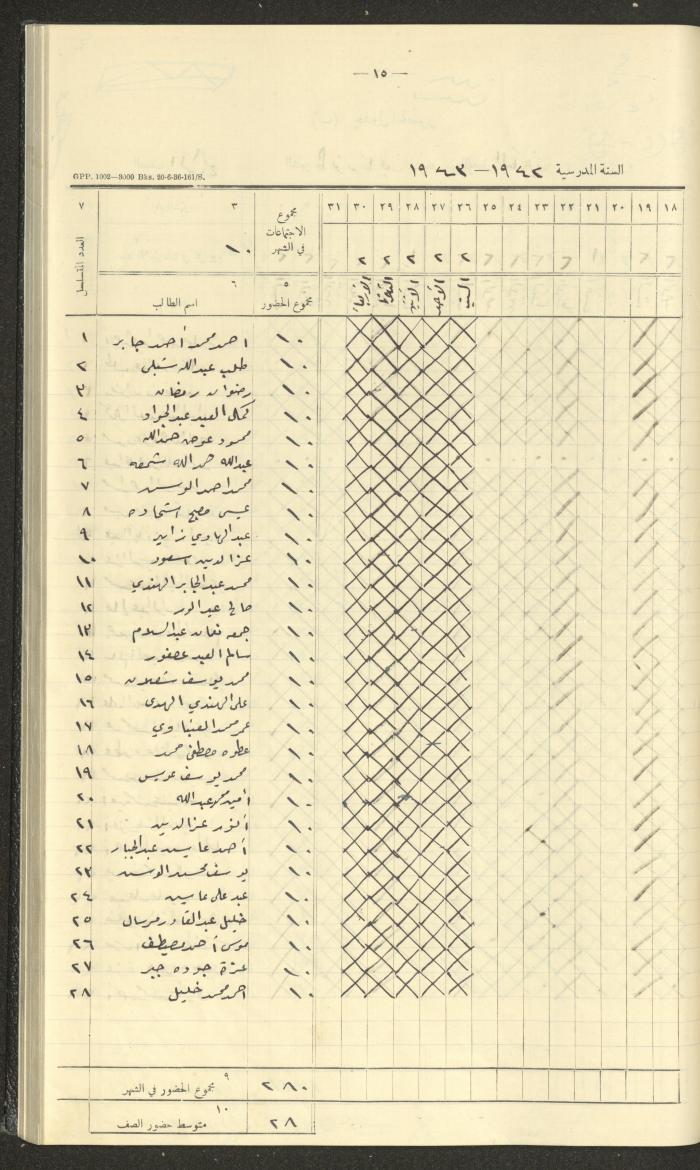 — ١٥ —
السنة المدرسية ١٩٤٢ – ١٩٤٣
GPP. 1002—3000 Bks. 20-6-36-161/S.
١٨ ١٩ ٢٠ ٢١ ٢٢ ٢٣ ٢٤ ٢٥ ٢٦ ٢٧ ٢٨ ٢٩ ٣٠ ٣١ مجموع الاجتماعات في الشهر ٣ ٧
١٠
العدد المتسلسل
السبت الأحد الاثنين الثلاثاء الأربعاء
٥ مجموع الحضور
٦ اسم الطالب
١ احمد محمد احمد جابر ١٠
٢ طلب عبدالله شبلي ١٠
٣ رضوان رمضان ١٠
٤ كمال العبد عبد الجواد ١٠
٥ محمود عوض ١٠
٦ عبدالله حمدالله ١٠
٧ محمد احمد ١٠
٨ عيسى مصبح ١٠
٩ عبد الهادي ١٠
١٠ عزالدين اسعود ١٠
١١ محمد عبد الجابر الهندي ١٠
١٢ صالح ١٠
١٣ جمعه نعمان عبد السلام ١٠
١٤ سالم العبد عصفور ١٠
١٥ محمد يوسف شعلان ١٠
١٦ علي الهندي ١٠
١٧ عمر محمد ١٠
١٨ عطوه مصطفى محمد ١٠
١٩ محمد يوسف عويس ١٠
٢٠ امين محمد عبدالله ١٠
٢١ انور عزالدين ١٠
٢٢ احمد ياسين عبد الجبار ١٠
٢٣ يوسف محمد ١٠
٢٤ عبد علي ياسين ١٠
٢٥ خليل عبد القادر مرسال ١٠
٢٦ موسى احمد مصطفى ١٠
٢٧ عزة جوده جبر ١٠
٢٨ احمد محمد خليل ١٠
٩ مجموع الحضور في الشهر ٢٨٠
١٠ متوسط حضور الصف ٢٨